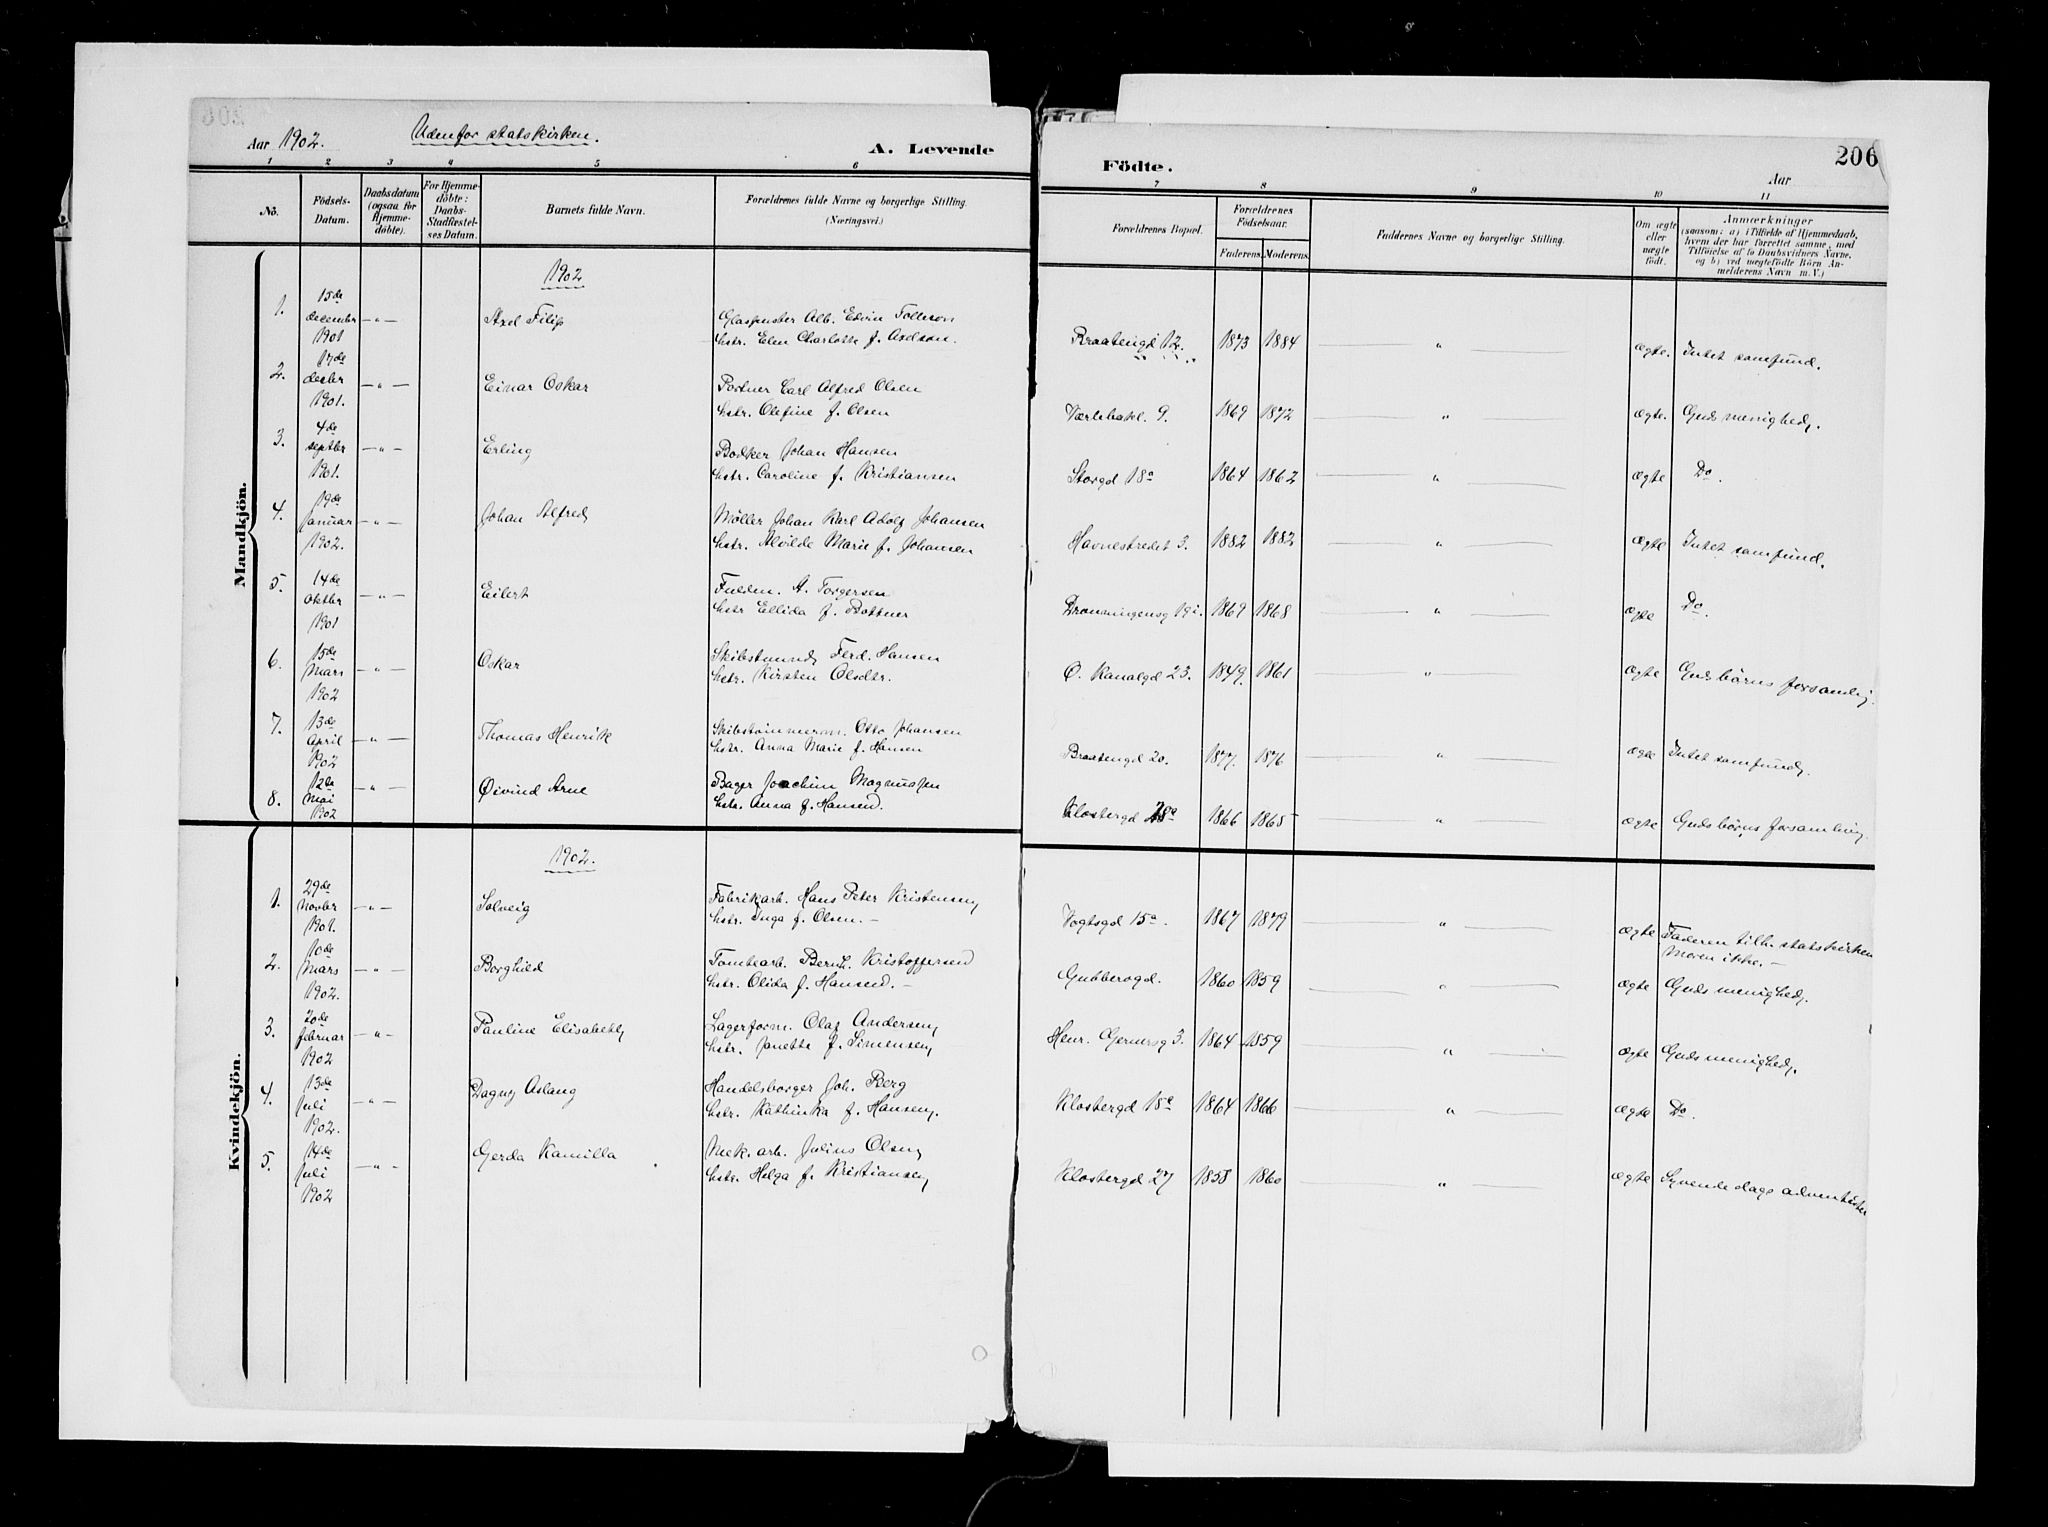 206
Aar 1902. Udenfor statskirken. A. Levende
1 2 3 4 5 6
No.
Födsels-Datum.
Daabsdatum (ogsaa for Hjemmedöbte).
For Hjemmedöbte: Daabs-Stadfæstelses Datum.
Barnets fulde Navn.
Forældrenes fulde Navne og borgerlige Stilling. (Næringsvei.)
Mandkjön.
1902
1. 15de december 1901 — „ — Axel Filip
Glaspuster Alb. Edvin Tollerson
hstr. Elen Charlotte f. Axelson.
2. 17de decbr 1901. — „ — Einar Oskar
Portner Carl Alfred Olsen
hstr. Olefine f. Olsen
3. 4de septbr 1901. — „ — Erling
Bødker Johan Hansen
hstr. Caroline f. Kristiansen
4. 19de Januar 1902. — „ — Johan Alfred
Møller Johan Karl Adolf Johansen
hstr. Alvilde Marie f. Johansen
5. 14de oktbr 1901 — „ — Eilert
A. Torgersen
hstr Ellida f. Bottner
6. 15de Mars 1902 — „ — Oskar
Ferd. Hansen
hstr. Kirsten Olsdtr.
7. 13de April 1902 — „ — Thomas Henrik
Skibstømmerm. Otto Johansen
hstr. Anna Marie f. Hansen
8. 12de Mai 1902 — „ — Øivind Arne
Bager Joachim Magnussen
hstr. Anna f. Hansen.
Kvindekjön.
1902.
1. 29de Novbr 1901. — „ — Solveig
Fabrikarb. Hans Peter Kristensen
hstr. Inga f. Olsen. —
2. 10de Mars 1902. — „ — Borghild
Tomtearb. Bernh. Kristoffersen
hstr. Olida f. Hansen. —
3. 20de februar 1902 — „ — Pauline Elisabeth
Lagerform. Olaf Andersen
hstr. Janette f. Simensen
4. 13de Juli 1902. — „ — Dagny Aslaug
Handelsborger Joh. Berg
hstr. Kathinka f. Hansen.
5. 14de Juli 1902 — „ — Gerda Kamilla
Mek. arb. Julius Olsen
hstr. Helga f. Kristiansen
Födte. Aar 206
7 8 9 10 11
Forældrenes Bopæl.
Forældrenes Födselsaar.
Faderens. Moderens.
Faddernes Navne og borgerlige Stilling.
Om ægte eller uægte födt.
Anmærkninger
(saasom: a) i Tilfælde af Hjemmedaab, hvem der har forrettet samme, med Tilföielse af to Daabsvidners Navne, og b) ved uægtefödte Börn Anmelderens Navn m. V.)
Braatengd 12. 1873 1884 — „ — ægte. Intet samfund.
9. 1869 1872 — „ — ægte. Guds menighed.
Storgd 18a 1864 1862 — „ — ægte Do.
Havnestredet 3. 1882 1882 — „ — ægte Intet samfund.
Dronningensg 19 1869 1868 — „ — ægte Do.
Ø. Kanalgd 23. 1849. 1861 — „ — ægte Guds børns forsamlig.
Braatengd 20. 1877. 1876 — „ — ægte Intet samfund.
Klostergd 28a 1866 1865 — „ — ægte Guds børns forsamling.
Vogtsgd 15a. 1867 1879 — „ — ægte Faderen tilh. statskirken
Moren ikke. —
Gubberogd. 1860 1859 — „ — ægte Guds menighed.
Henr. Gernersg 3. 1864 1859 — „ — ægte Guds menighed.
Klostergd 18a 1864 1866 — „ — ægte Do.
Klostergd 27 1858 1860 — „ — ægte Syvende dags adventister